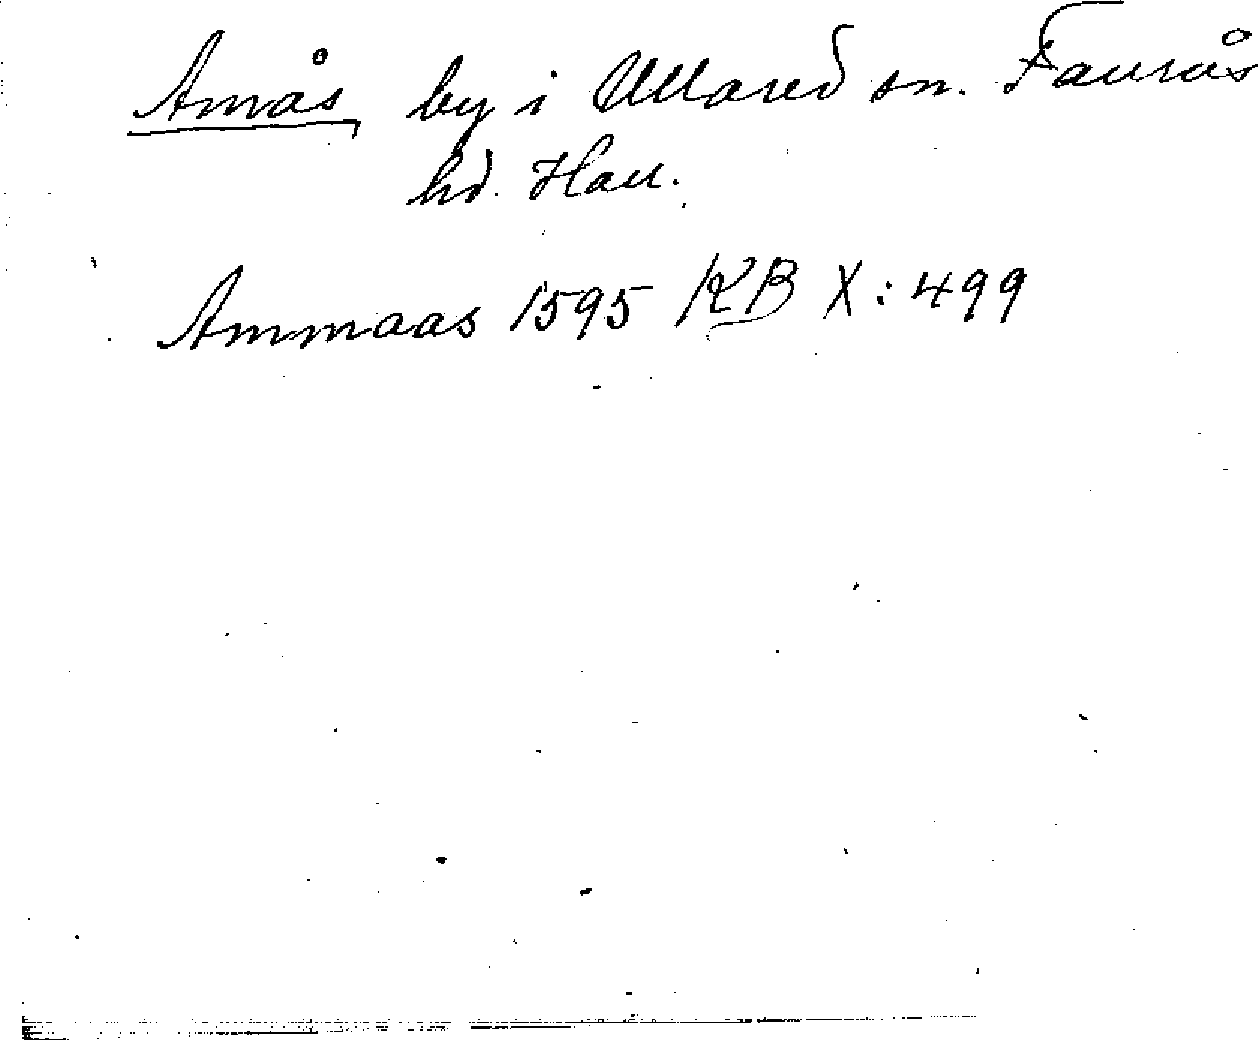 Amås, by i Ullared sn. Faurås
hd. Hall.
Ammaas 1595 KB X: 499